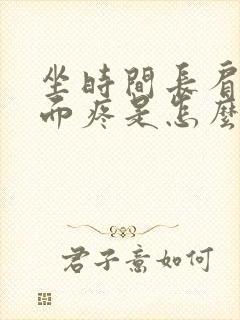 坐時間長肩
而疼是怎麼
君子意如何